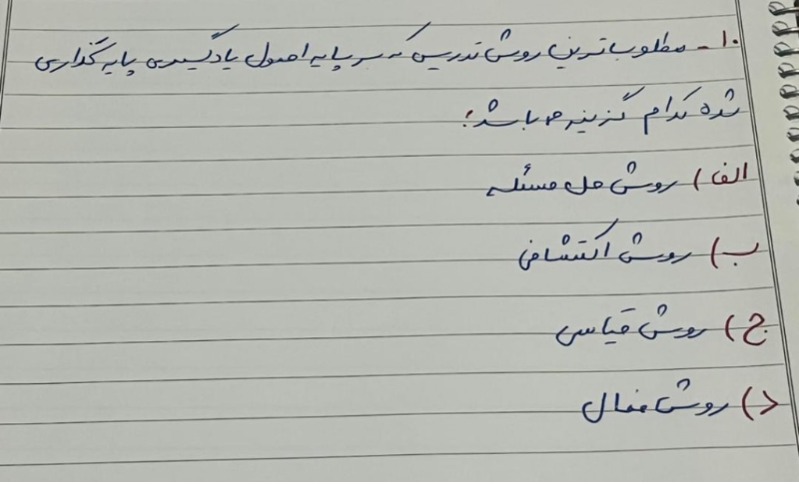 ۱۰- مطلوب‌ترین روش تدریس که بر پایه اصول یادگیری پایه گذاری
شده کدام گزینه می باشد؛
الف) روش حل مسئله
ب) روش اکتشافی
ج) روش قیاسی
د) روش فعال